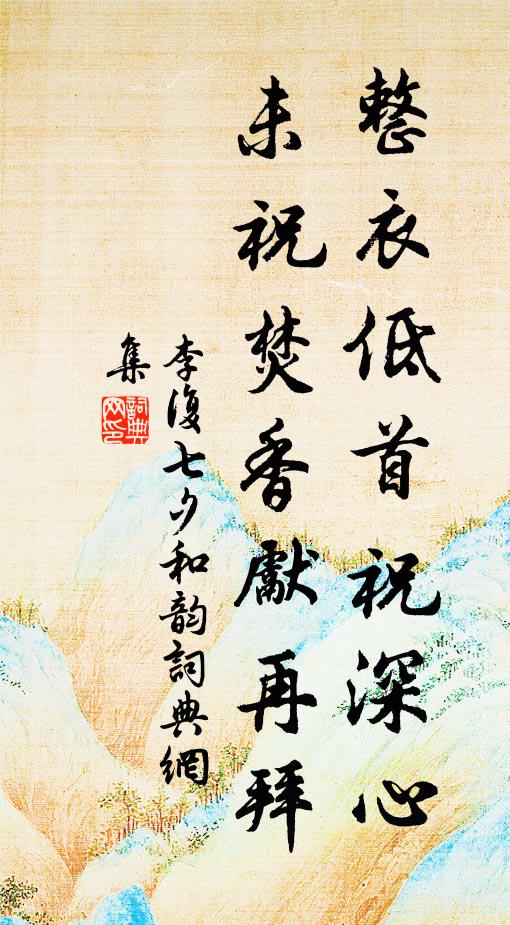 整衣低首祝深心
未祝焚香獻再拜
李復七夕和韵詞典網
集
詞典
网印